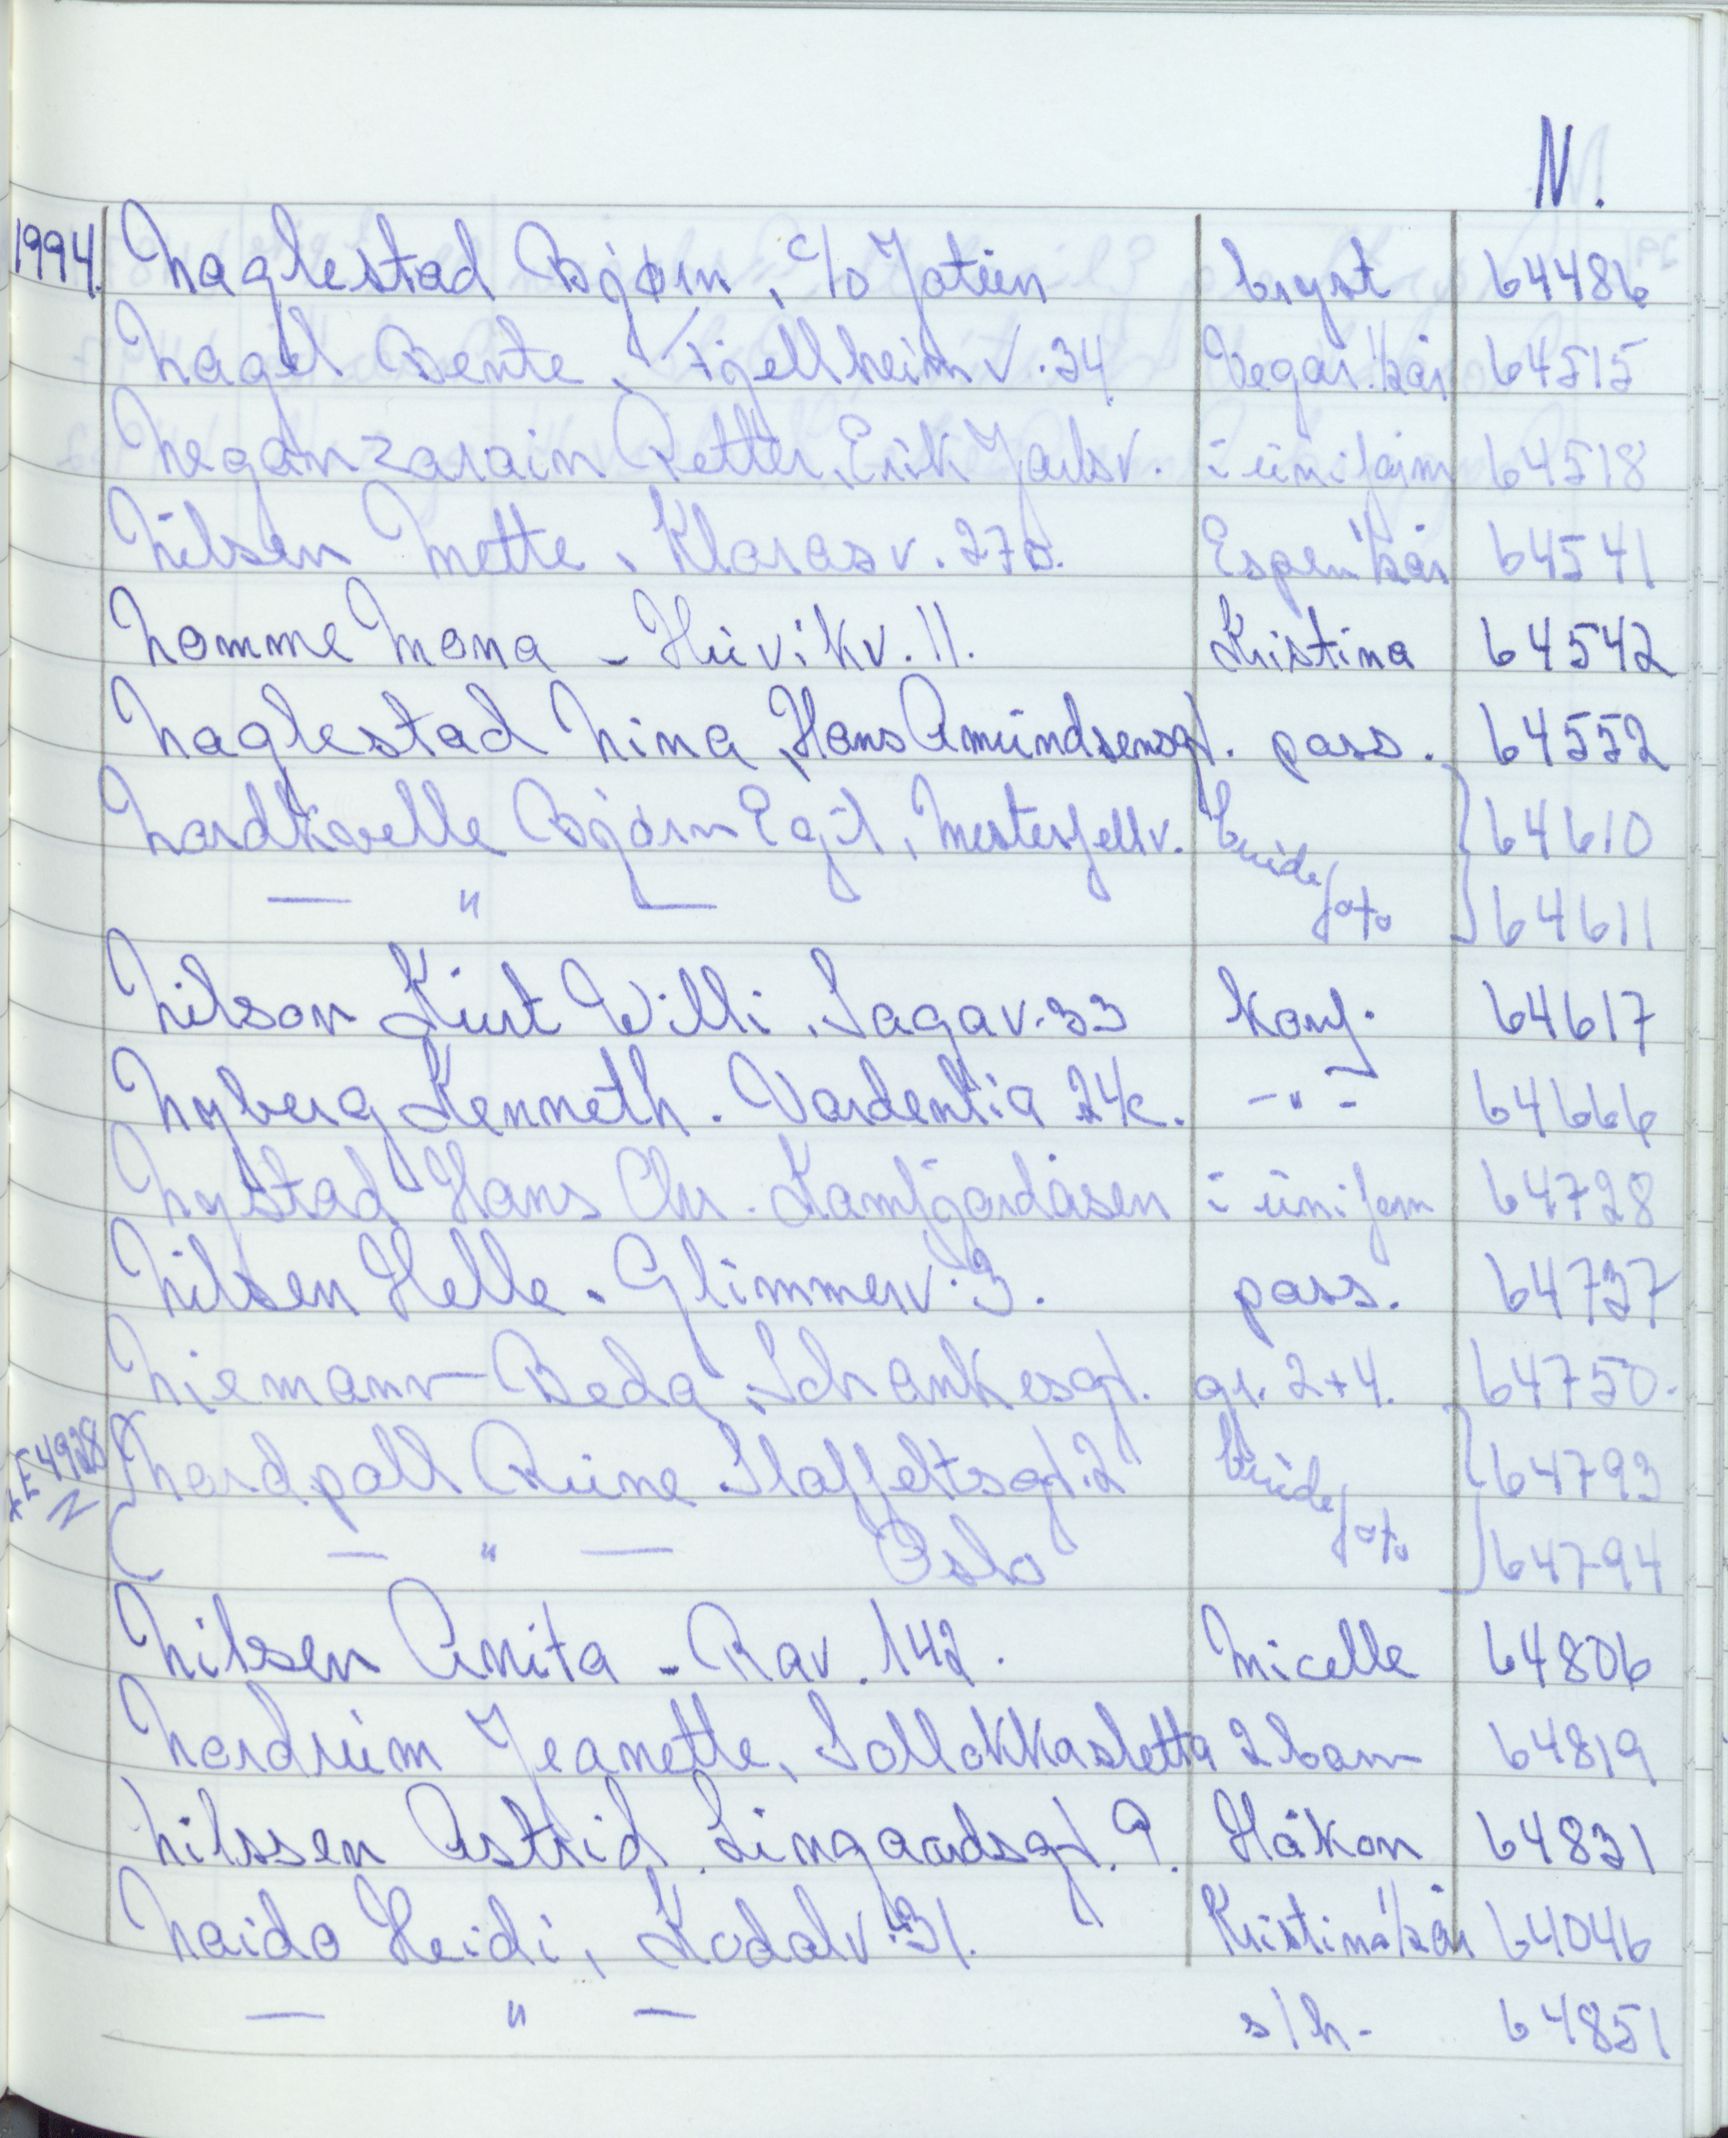 N.
1994. Naglestad Bjørn, c/o Jotun bryst 64486
Nagel Bente, Fjellheimv. 34 Vegar 1/2 år 64515
Neganzarain Petter, Erik Jarlsv. i uniform 64518
Nilsen Mette, Klarasv. 27b. Espen 1/2 år 64541
Nomme Mona - Huvikv. 11. Kristina 64542
Naglestad Nina, Hans Amundsensgt. pass. 64552
Nordkvelle Bjørn Egil, Mesterfjellv. brude 64610
— " — foto 64611
Nilson Kurt Willi, Sagav. 33 konf. 64617
Nyberg Kenneth. Vardentia 24c. - " - 64666
Nystad Hans Chr. Kamfjordåsen i uniform 64728
Nilsen Helle. Glimmerv. 3. pass. 64737
Niemann Beda, Schankesgt. gr. 2+4. 64750.
XE 4928 N Nordpoll Rune Staffeltsgt. 2 brude 64793
— " — Oslo foto 64794
Nilsen Anita - Rav. 142. Micelle 64806
Nordrum Jeanette, Solløkkasletta 2 barn 64819
Nilssen Astrid. Lingaardsgt. 9. Håkon 64831
Naido Heidi, Kodalv. 31. Kristina 1/2 år 64046
— " — s/h - 64851